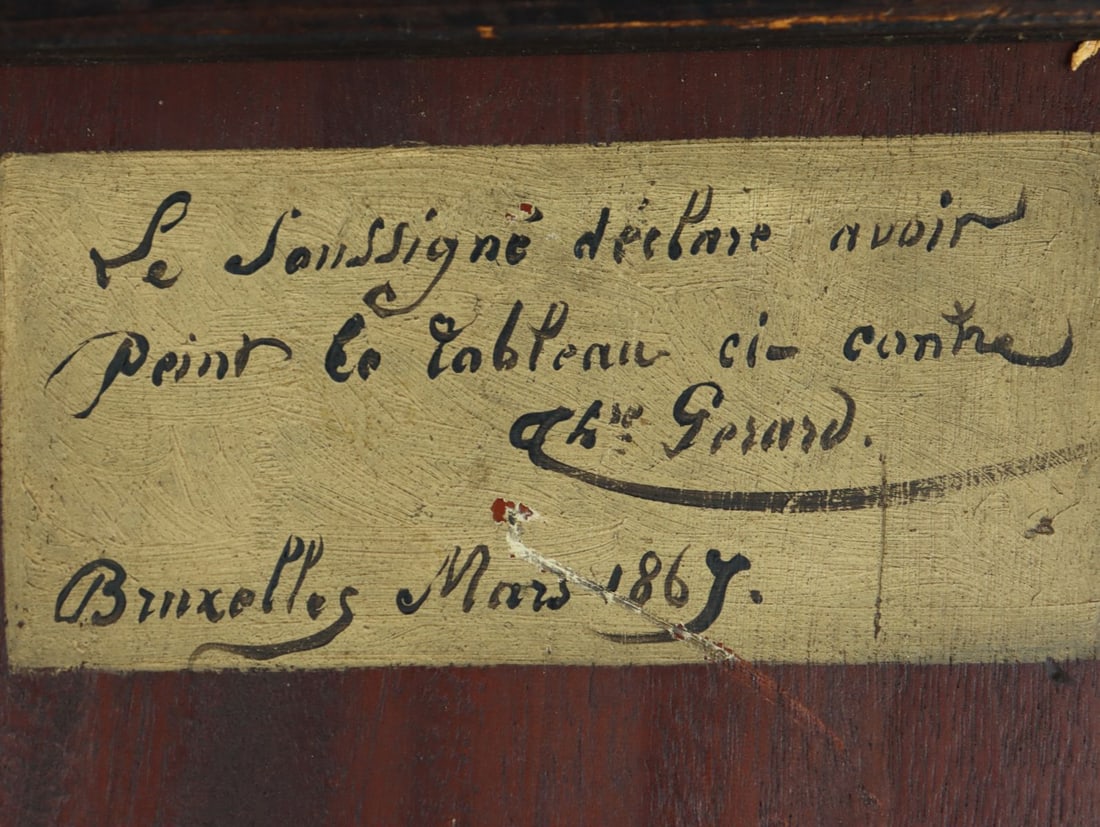 Le Soussigné déclare avoir
peint le tableau ci-contre
Thre Gerard.
Bruxelles Mars 1867.